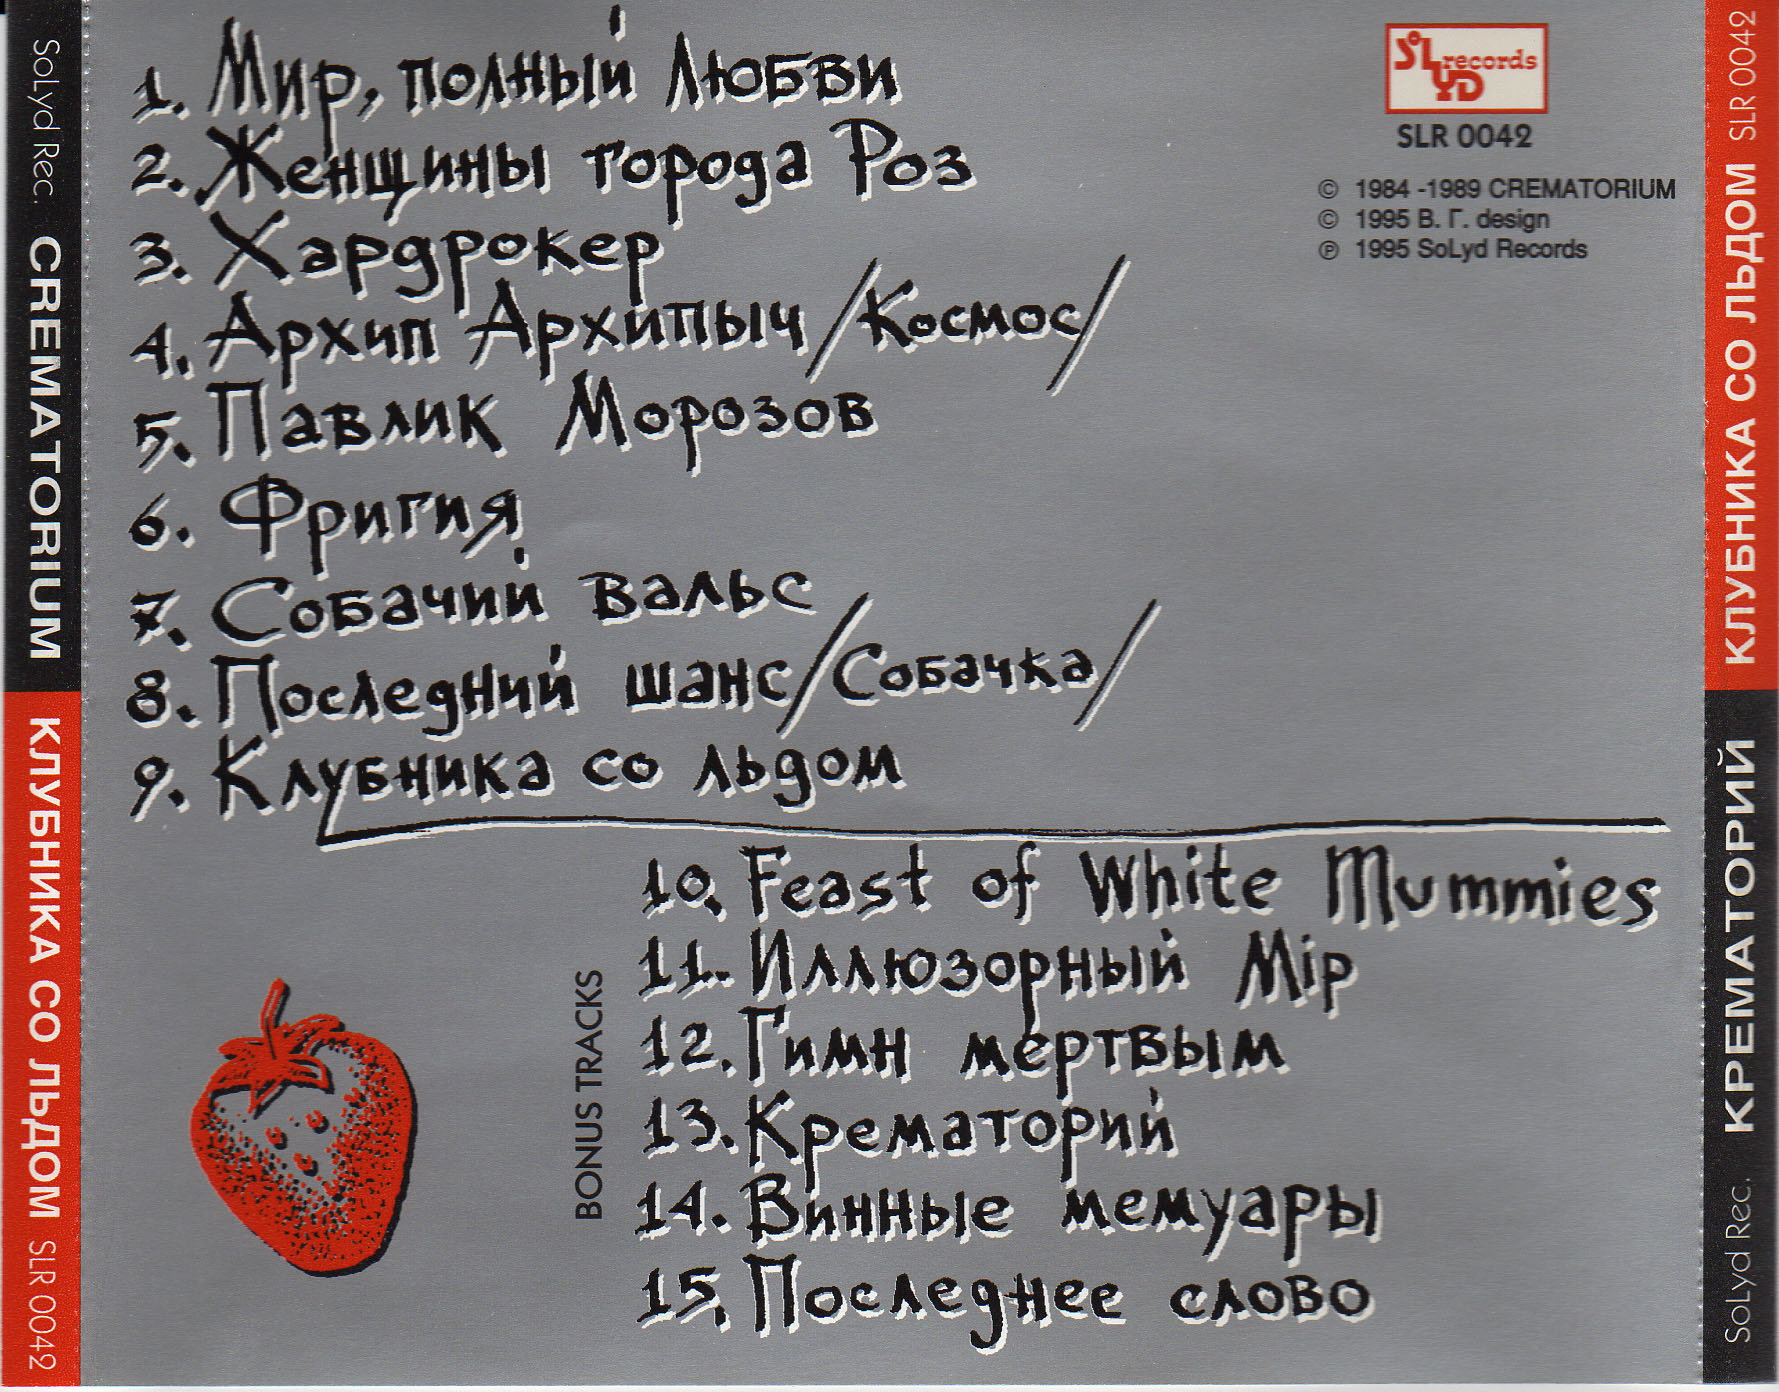 SoLyd Rec. CREMATORIUM КЛУБНИКА СО ЛЬДОМ SLR 0042
1. Мир, полный Любви
2. Женщины города Роз
3. Хардрокер
4. Архип Архипыч /Космос/
5. Павлик Морозов
6. Фригия
7. Собачий вальс
8. Последний шанс /Собачка/
9. Клубника со льдом
BONUS TRACKS
10. Feast of White Mummies
11. Иллюзорный Мiр
12. Гимн мертвым
13. Крематорий
14. Винные мемуары
15. Последнее слово
SoLYD records
SLR 0042
© 1984 -1989 CREMATORIUM
© 1995 В. Г. design
℗ 1995 SoLyd Records
SoLyd Rec. КРЕМАТОРИЙ КЛУБНИКА СО ЛЬДОМ SLR 0042